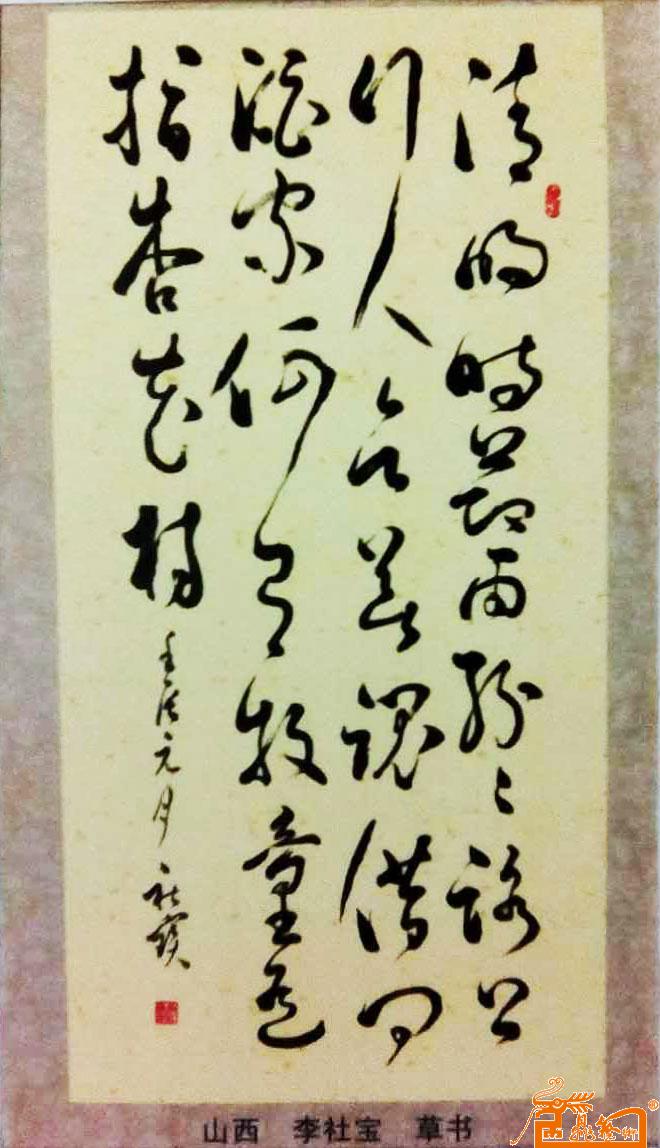 清明時節雨紛〻路上
行人欲斷魂借问
酒家何有牧童遥
指杏花村
壬辰元月 社寶
山西 李社宝 草书